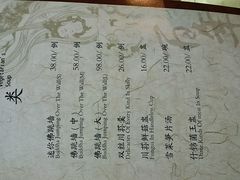 Vegetarian's
Soup
类
迷你佛跳墙 38.00/例
Buddha Jumping Over The Wall(S)
佛跳墙·中 58.00/例
Buddha Jumping Over The Wall(M)
佛跳墙·大 98.00/例
Buddha Jumping Over The Wall
双丝川荪羹 26.00/例
Delicacies Of Every Kind In
川荪鲜菇盅 16.00/盅
In Harmonious Cup
雪菜笋片汤 22.00/碗
竹荪菌王盅 22.00/盅
Three Kinds Of in Soup